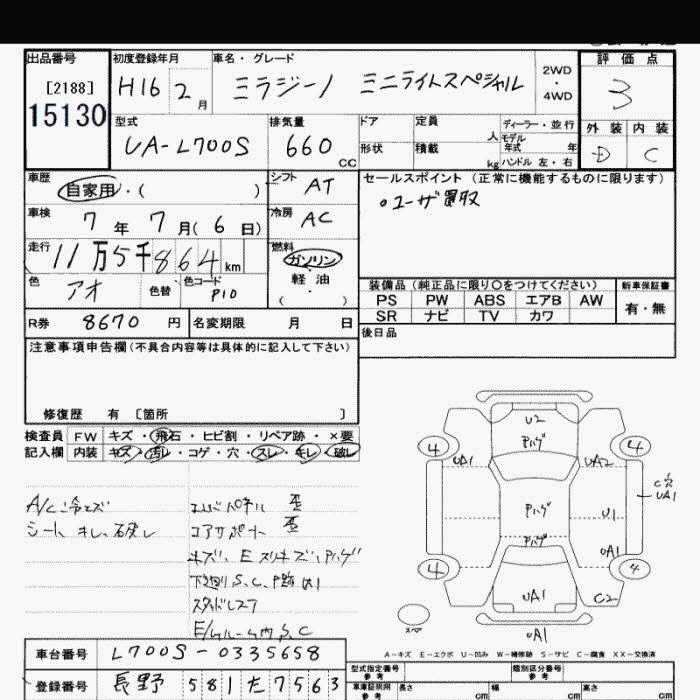 出品番号
[2188]
15130
初度登録年月
H16 2月
車名・グレード
ミラジーノ ミニライトスペシャル
2WD
・
4WD
評価点
3
外装 内装
D C
型式
UA-L700S
排気量
660 CC
ドア
形状
定員 人
積載 kg
ディーラー・並行
モデル
年式 年
ハンドル 左・右
車歴
自家用・( )
シフト
AT
車検
7年7月(6日)
冷房
AC
走行
11万5千864 km
燃料
ガソリン
軽油
・
( )
色
アオ
色替
色コード
P10
R券 8670 円
名変期限 月 日
セールスポイント (正常に機能するものに限ります)
○ユーザ買取
装備品 (純正品に限り〇をつけてください)
PS PW ABS エアB AW
SR ナビ TV カワ
新車保証書
有・無
後日品
注意事項申告欄(不具合内容等は具体的に記入して下さい)
修復歴 有 [箇所 ]
検査員 FW キズ・飛石・ヒビ割・リペア跡・×要
記入欄 内装 キズ・汚レ・コゲ・穴・スレ・キレ・破レ
A/C冷エズ
シート キレ、破レ
コアサポート 歪
キズ、E スリキズ、Pハゲ
下廻りS、C
スタッドレス
E/ルーム内S、C
U2
Pハゲ
4
4
UA1
UA2
C穴
UA1
Pハゲ
U1
Pハゲ
UA1
4
4
UA1
C2
スペア
UA1
A-キズ E-エクボ U-凹み W-補修跡 S-サビ C-腐食 XX-交換済
車台番号 L700S-0335658
登録番号 長野 581 た 7563
型式指定番号
参考
類別区分番号
参考
車庫証明用
参考
長さ cm
幅 cm
高さ cm